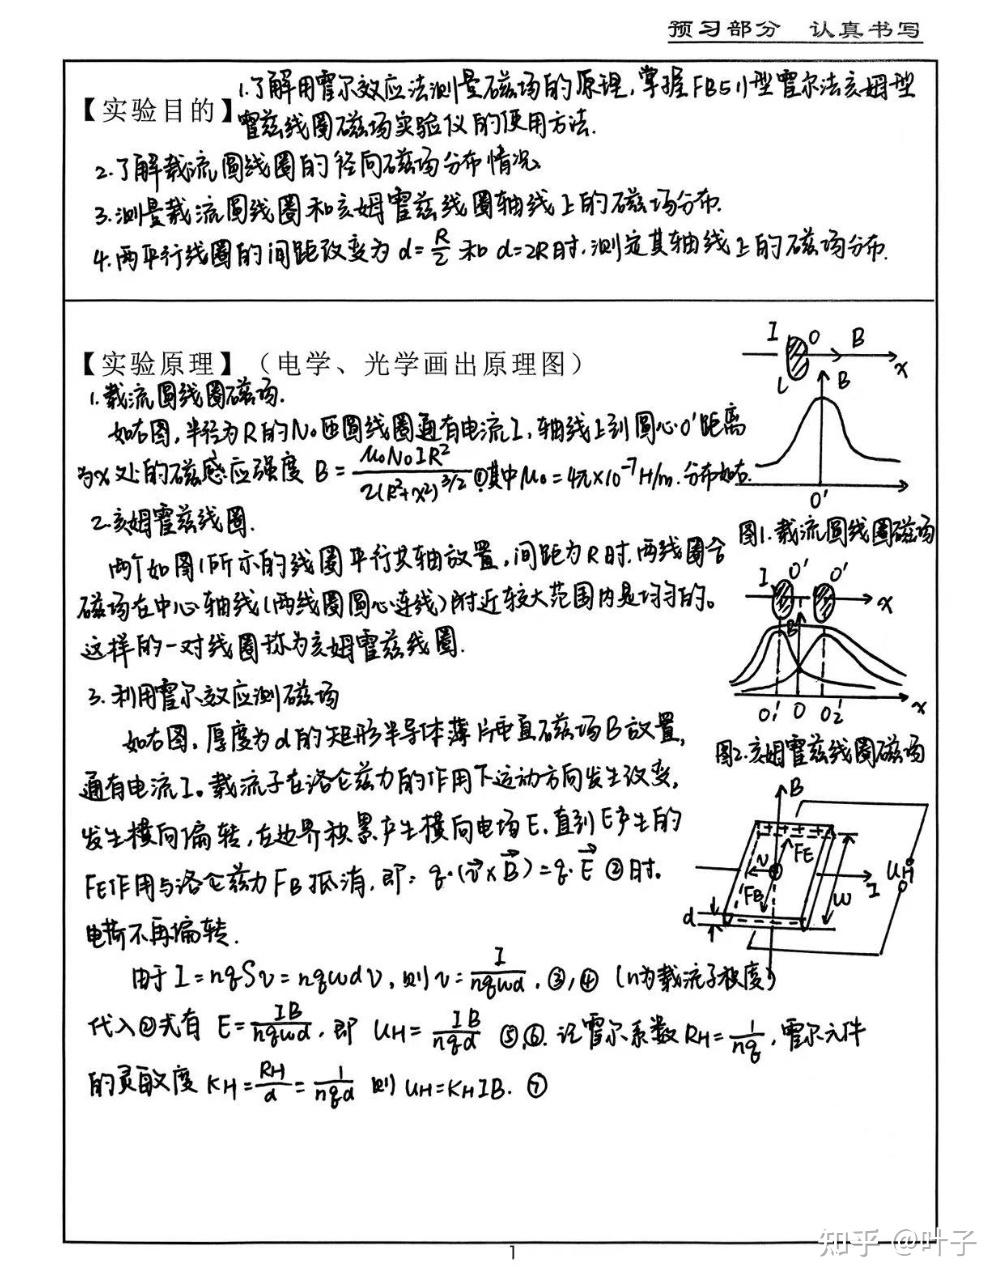 预习部分 认真书写
【实验目的】1.了解用霍尔效应法测量磁场的原理,掌握FB511型霍尔法亥姆型
霍兹线圈磁场实验仪的使用方法.
2.了解载流圆线圈的径向磁场分布情况
3.测量载流圆线圈和亥姆霍兹线圈轴线上的磁场分布.
4.两平行线圈的间距改变为 d=R/2 和 d=2R时,测定其轴线上的磁场分布.
【实验原理】(电学、光学画出原理图)
1.载流圆线圈磁场.
如右图,半径为R的N₀匝圆线圈通有电流I,轴线上到圆心O'距离
为x处的磁感应强度 B=μ₀N₀IR²/2(R²+x²)^3/2 ①其中μ₀=4π×10⁻⁷H/m.分布如右.
2.亥姆霍兹线圈.
两个如图1所示的线圈平行共轴放置,间距为R时.两线圈合
磁场在中心轴线(两线圈圆心连线)附近较大范围内是均匀的。
这样的一对线圈称为亥姆霍兹线圈.
3.利用霍尔效应测磁场
如右图,厚度为d的矩形半导体薄片垂直磁场B放置,
通有电流I。载流子在洛仑兹力的作用下运动方向发生改变,
发生横向偏转,在边界积累产生横向电场E.直到E产生的
FE作用与洛仑兹力FB抵消,即: q·(v⃗×B⃗)=q·E⃗ ②时.
电荷不再偏转.
由于I=nqSv=nqwdv,则v=I/nqwd.③,④ (n为载流子浓度)
代入②式有 E=IB/nqwd,即 UH=IB/nqd ⑤,⑥.记霍尔系数RH=1/nq,霍尔元件
的灵敏度 KH=RH/d=1/nqd 则 UH=KHIB. ⑦
I O B x
L
B
O'
图1.载流圆线圈磁场
I O' O' x
B
O₁' O O₂' x
图2.亥姆霍兹线圈磁场
B
v FE FB w I UH
d
1
知乎 @叶子